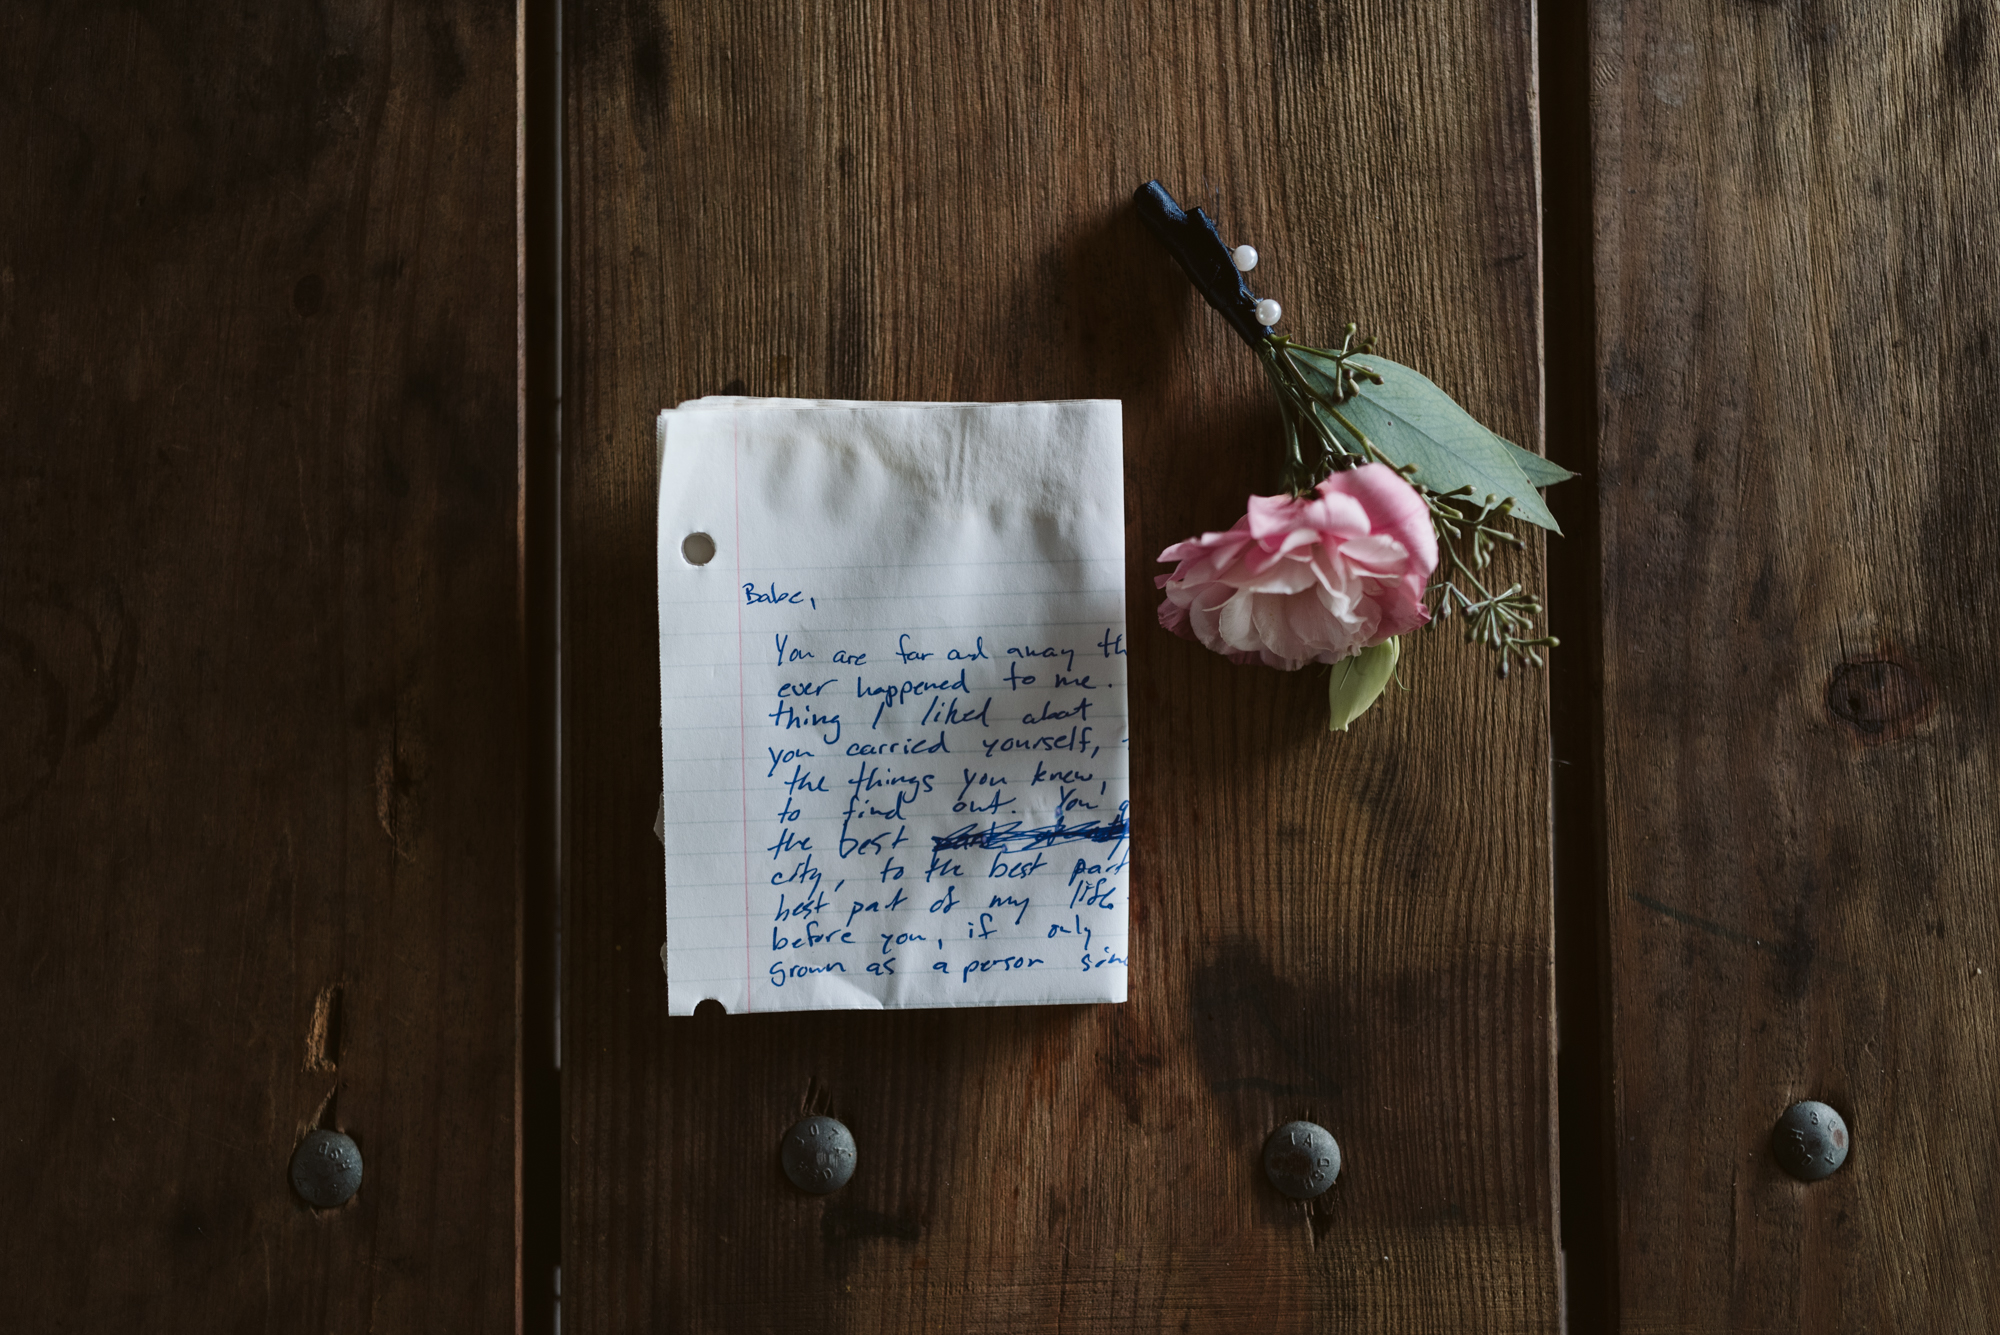 Babe,
You are far and away th
ever happened to me.
thing I liked about
you carried yourself,
the things you knew,
to find out. You'
the best
city, to the best part
best part of my life
before you, if only
grown as a person sinc